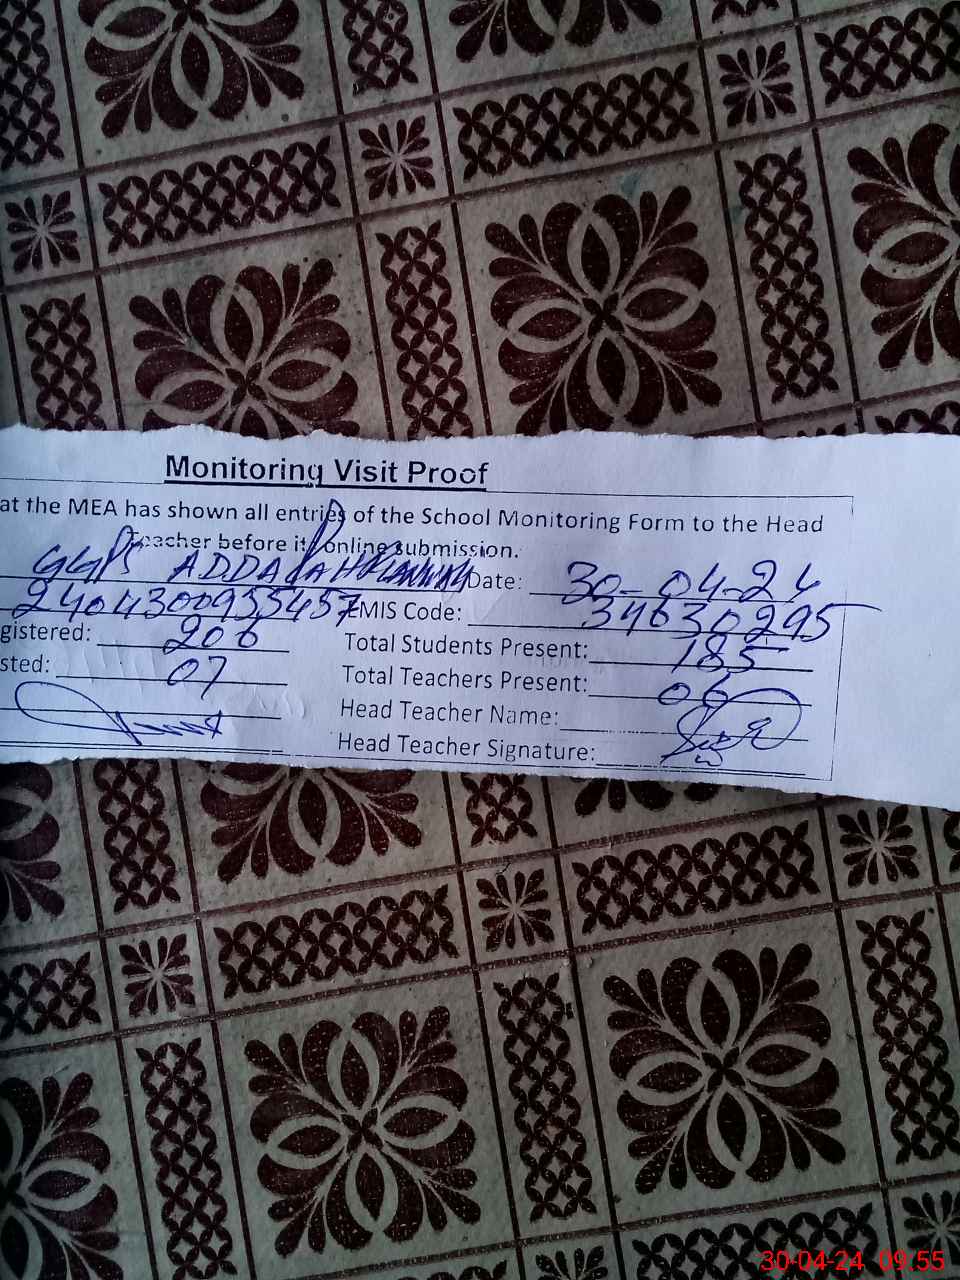 Monitoring Visit Proof
at the MEA has shown all entries of the School Monitoring Form to the Head
Teacher before it online submission.
GGPS ADDA Date: 30-04-24
2404300955457 EMIS Code: 34630295
gistered: 206 Total Students Present: 185
sted: 07 Total Teachers Present: 06
Head Teacher Name:
Head Teacher Signature:
30-04-24 09:55